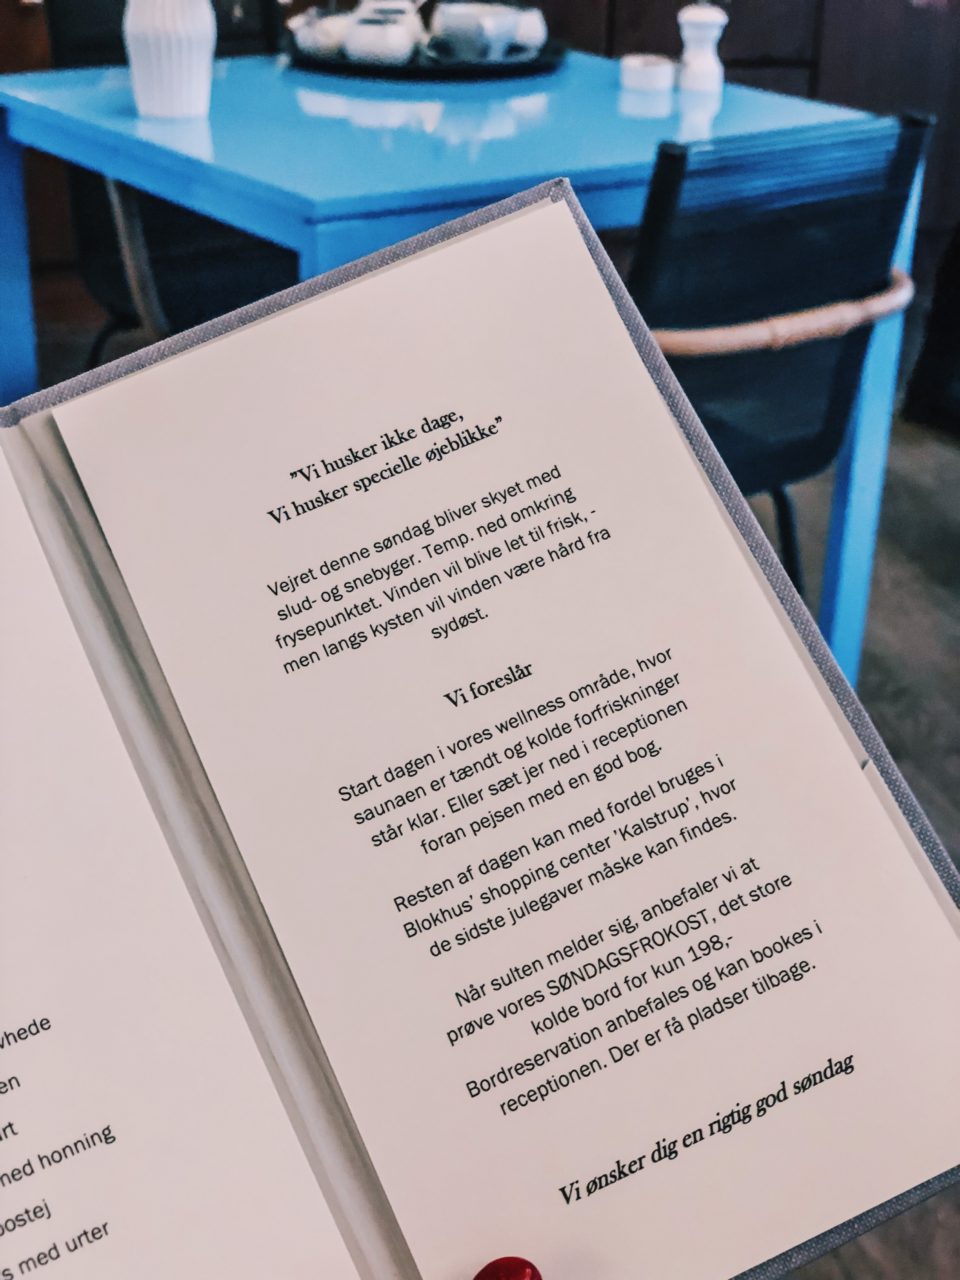 "Vi husker ikke dage,
Vi husker specielle øjeblikke"
Vejret denne søndag bliver skyet med
slud- og snebyger. Temp. ned omkring
frysepunktet. Vinden vil blive let til frisk, -
men langs kysten vil vinden være hård fra
sydøst.
Vi foreslår
Start dagen i vores wellness område, hvor
saunaen er tændt og kolde forfriskninger
står klar. Eller sæt jer ned i receptionen
foran pejsen med en god bog.
Resten af dagen kan med fordel bruges i
Blokhus' shopping center 'Kalstrup', hvor
de sidste julegaver måske kan findes.
Når sulten melder sig, anbefaler vi at
prøve vores SØNDAGSFROKOST, det store
kolde bord for kun 198,-
Bordreservation anbefales og kan bookes i
receptionen. Der er få pladser tilbage.
Vi ønsker dig en rigtig god søndag
med urter
honning